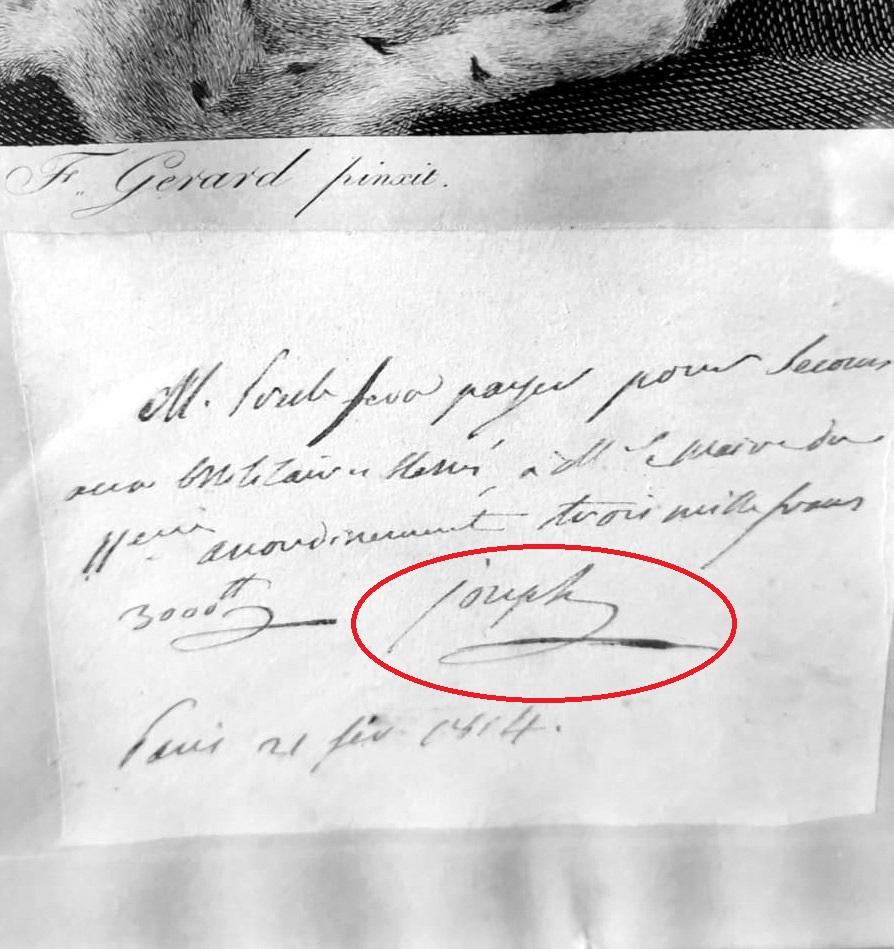 F. Gerard pinxit.
M. fera payer pour Secours
aux Militaires blessés, à M. le Maire du
11eme arrondissement trois mille francs
3000tt joseph
Paris 21 fév. 1814.